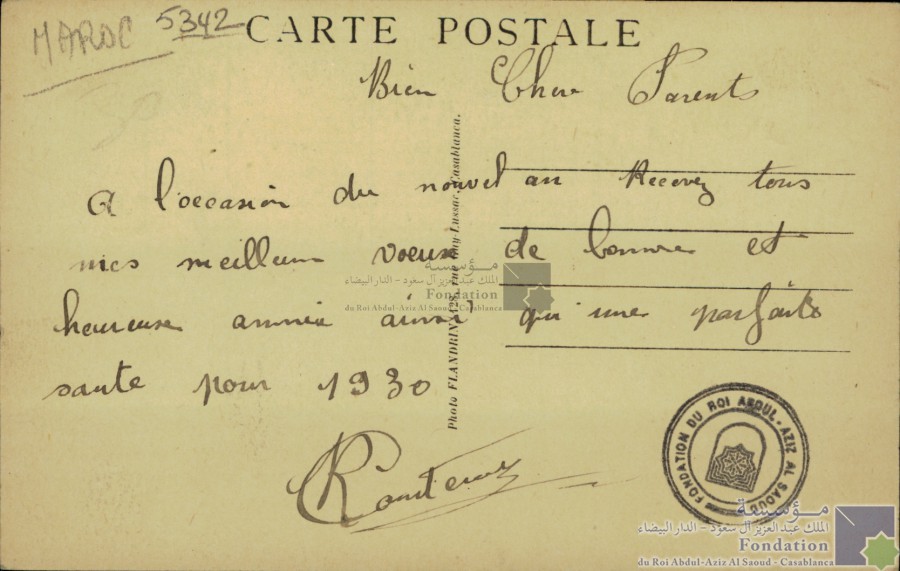 MAROC
5342
CARTE POSTALE
Bien Chers Parents
A l'occasion du nouvel an Recevez tous
mes meilleurs voeux de bonne et
heureuse année ainsi qu'une parfaite
sante pour 1930
Photo FLANDRIN, rue Guy-Lussac, Casablanca.
مؤسسة
الملك عبدالعزيز آل سعود - الدار البيضاء
Fondation
du Roi Abdul-Aziz Al Saoud - Casablanca
FONDATION DU ROI ABDUL-AZIZ AL SAOUD
مؤسسة
الملك عبدالعزيز آل سعود - الدار البيضاء
Fondation
du Roi Abdul-Aziz Al Saoud - Casablanca